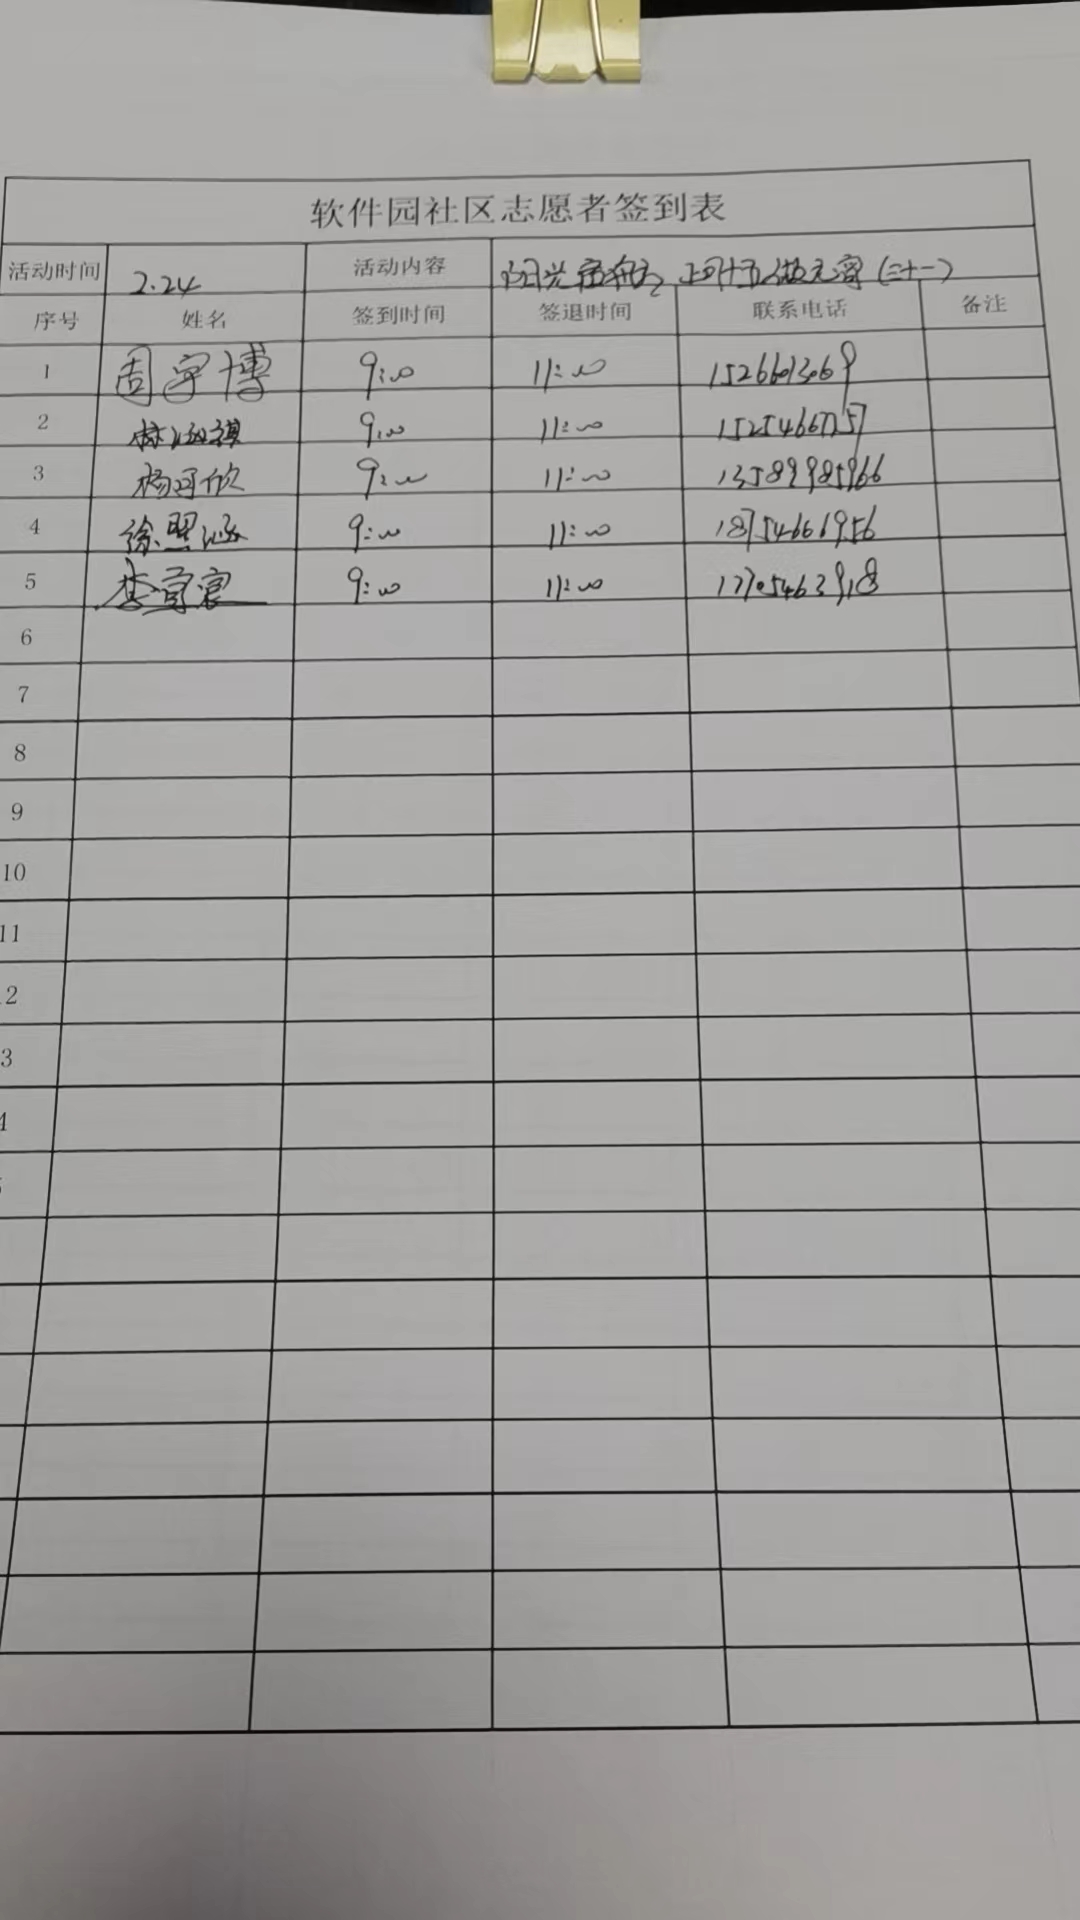 软件园社区志愿者签到表
活动时间 2.24 活动内容 阳光 正月十五做元宵(二十一)
序号 姓名 签到时间 签退时间 联系电话 备注
1 周宇博 9:00 11:00
2 9:00 11:00
3 杨可欣 9:00 11:00 13589985966
4 徐墨涵 9:00 11:00 18754666956
5 李宜宸 9:00 11:00 17705463918
6
7
8
9
10
11
2
3
4